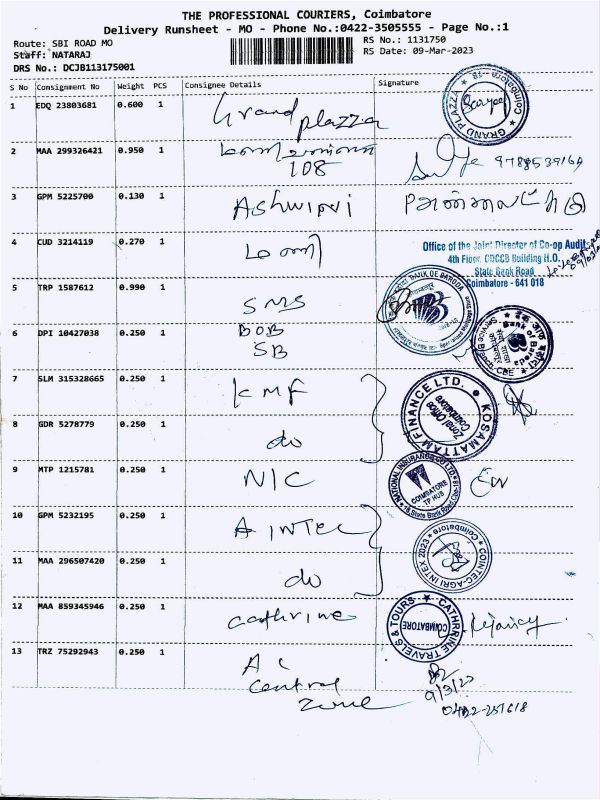 THE PROFESSIONAL COURIERS, Coimbatore
Delivery Runsheet - MO - Phone No.:0422-3505555 - Page No.:1
Route: SBI ROAD MO
RS No.: 1131750
Staff: NATARAJ
RS Date: 09-Mar-2023
DRS No.: DCJB113175001
S No Consignment No Weight PCS Consignee Details Signature
1 EDQ 23803681 0.600 1 Grand plazza
GRAND PLAZZA Coimbatore-18
2 MAA 299326421 0.950 1
108
3 GPM 5225700 0.130 1 Ashwini
4 CUD 3214119 0.270 1 மணி
Office of the Joint Director of Co-op Audit
4th Floor, CDCCB Building H.O.
State Bank Road
Coimbatore - 641 018
5 TRP 1587612 0.990 1 SMS
BANK OF BARODA
6 DPI 10427038 1 0.250 BOB
SB
Bank of Baroda
7 SLM 315328665 0.250 1 KMF
KOSAMATTAM FINANCE LTD.
Zonal Office
Coimbatore
8 GDR 5278779 0.250 1 do
9 MTP 1215781 0.250 1 NIC
NATIONAL INSURANCE CO LTD
COIMBATORE
TP HUB
10 GPM 5232195 0.250 1 A INTEC
COINTEC-AGRI INTEX 2023 Coimbatore
11 MAA 296507420 0.250 1 do
12 MAA 859345946 0.250 1 Cathrine
CATHRRINE TRAVELS & TOURS
COIMBATORE
13 TRZ 75292943 0.250 1 A C
Central
Zone
9/3/23